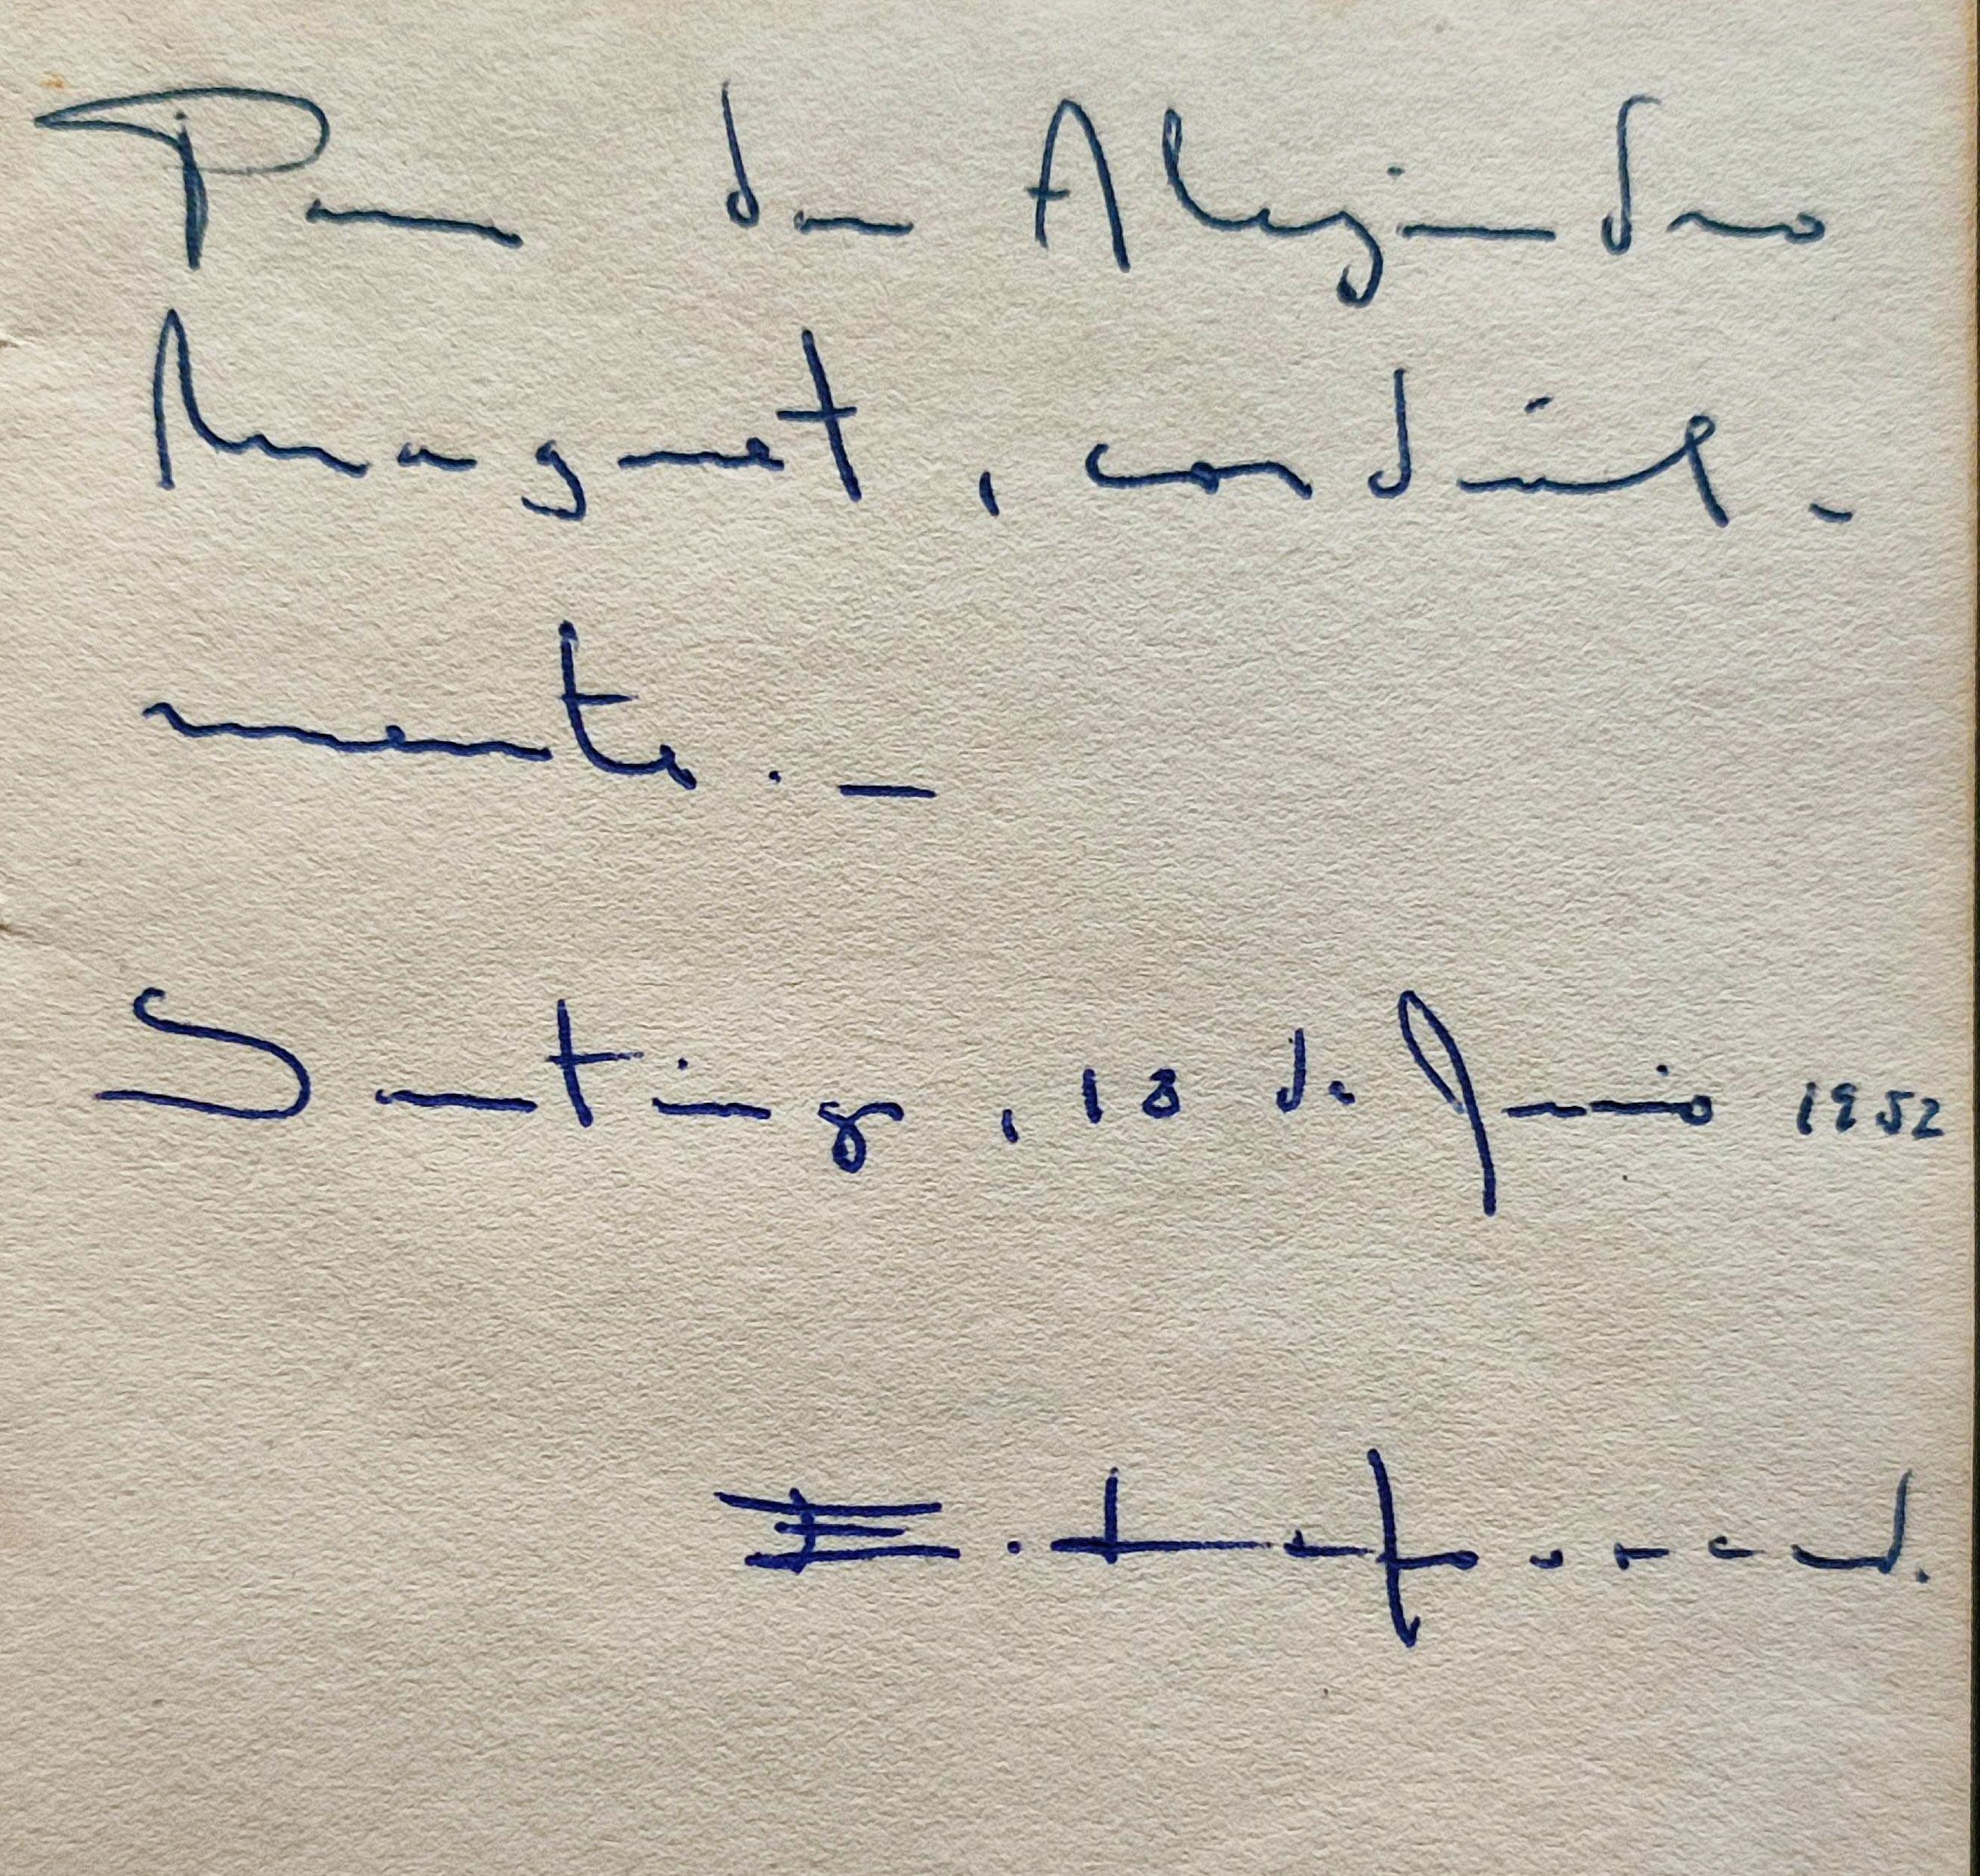 Para don Alejandro
Magnet, cordial-
mente. _
Santiago, 13 de Junio 1952
E.